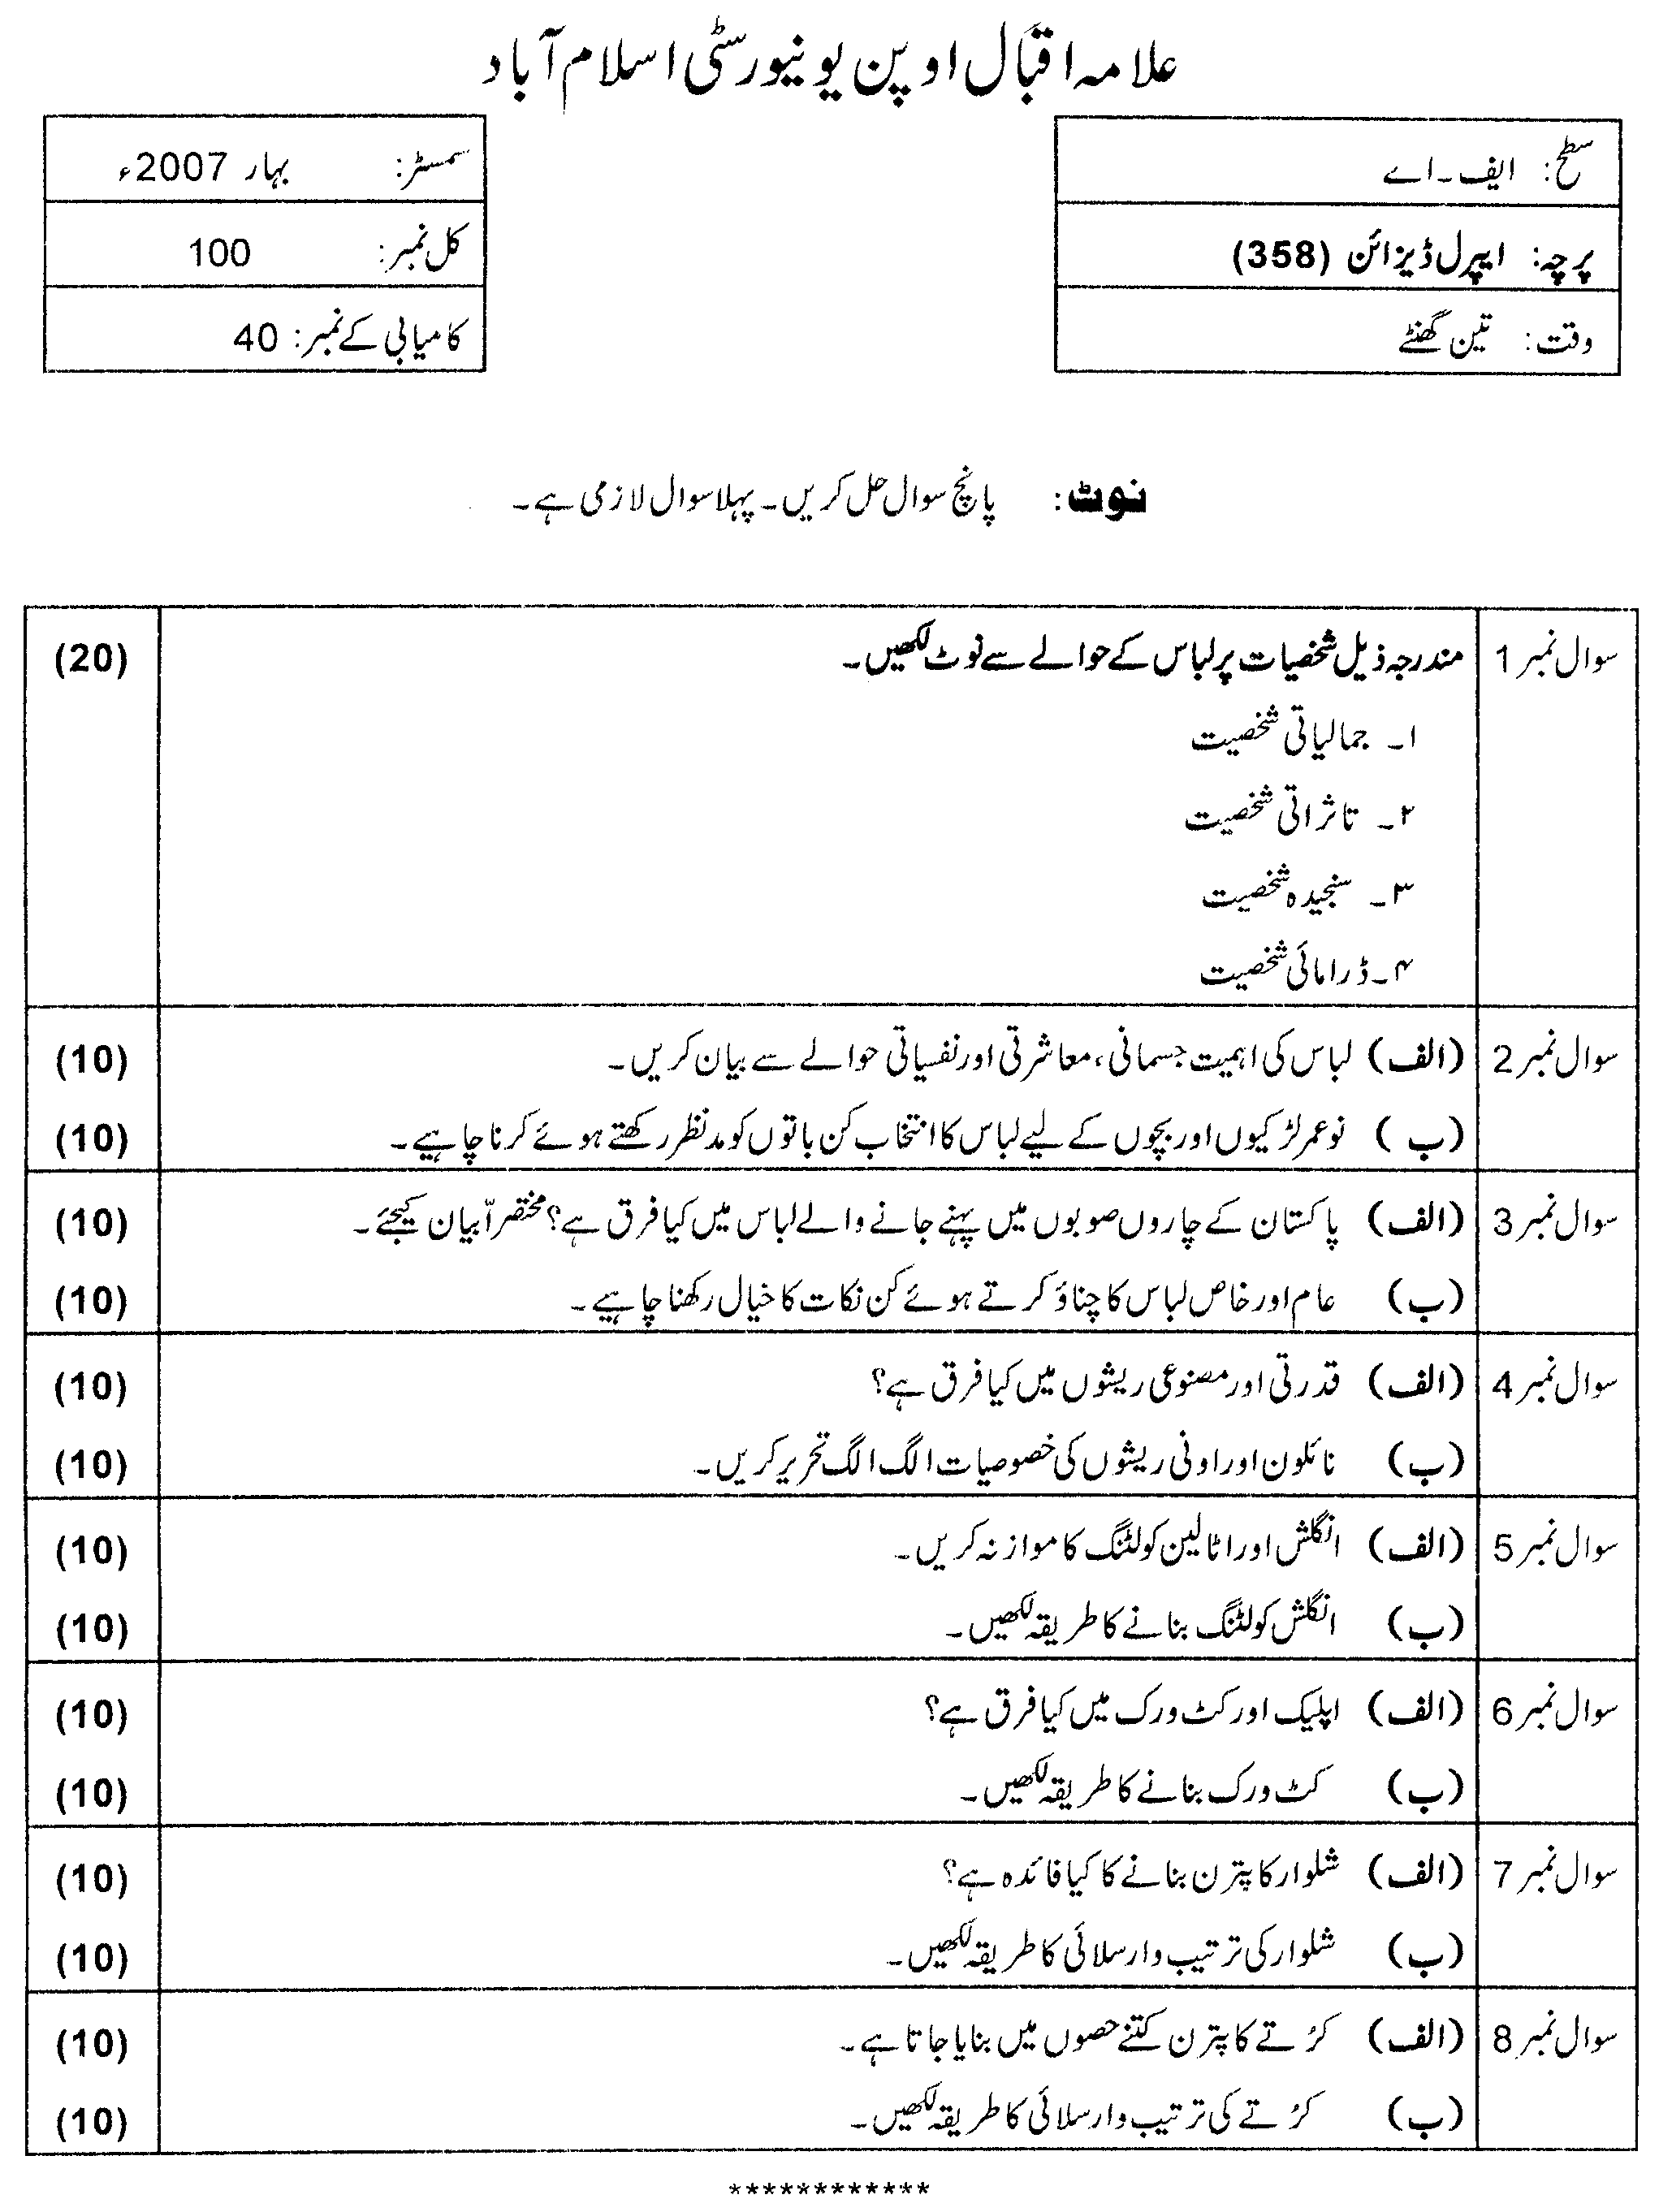 علامہ اقبال اوپن یونیورسٹی اسلام آباد
سطح: ایف۔اے
سمسٹر: بہار 2007ء
پرچہ: ایپرل ڈیزائن (358)
کل نمبر: 100
وقت: تین گھنٹے
کامیابی کے نمبر: 40
نوٹ: پانچ سوال حل کریں۔ پہلا سوال لازمی ہے۔
سوال نمبر 1 مندرجہ ذیل شخصیات پر لباس کے حوالے سے نوٹ لکھیں۔ (20)
۱۔ جمالیاتی شخصیت
۲۔ تاثراتی شخصیت
۳۔ سنجیدہ شخصیت
۴۔ ڈرامائی شخصیت
سوال نمبر 2 (الف) لباس کی اہمیت جسمانی، معاشرتی اور نفسیاتی حوالے سے بیان کریں۔ (10)
(ب) نوعمر لڑکیوں اور بچوں کے لیے لباس کا انتخاب کن باتوں کو مدنظر رکھتے ہوئے کرنا چاہیے۔ (10)
سوال نمبر 3 (الف) پاکستان کے چاروں صوبوں میں پہنے جانے والے لباس میں کیا فرق ہے؟ مختصراً بیان کیجئے۔ (10)
(ب) عام اور خاص لباس کا چناؤ کرتے ہوئے کن نکات کا خیال رکھنا چاہیے۔ (10)
سوال نمبر 4 (الف) قدرتی اور مصنوعی ریشوں میں کیا فرق ہے؟ (10)
(ب) نائلون اور اونی ریشوں کی خصوصیات الگ الگ تحریر کریں۔ (10)
سوال نمبر 5 (الف) انگلش اور اٹالین کولٹنگ کا موازنہ کریں۔ (10)
(ب) انگلش کولٹنگ بنانے کا طریقہ لکھیں۔ (10)
سوال نمبر 6 (الف) اپلیک اور کٹ ورک میں کیا فرق ہے؟ (10)
(ب) کٹ ورک بنانے کا طریقہ لکھیں۔ (10)
سوال نمبر 7 (الف) شلوار کا پترن بنانے کا کیا فائدہ ہے؟ (10)
(ب) شلوار کی ترتیب وار سلائی کا طریقہ لکھیں۔ (10)
سوال نمبر 8 (الف) کرُتے کا پترن کتنے حصوں میں بنایا جاتا ہے۔ (10)
(ب) کرُتے کی ترتیب وار سلائی کا طریقہ لکھیں۔ (10)
************